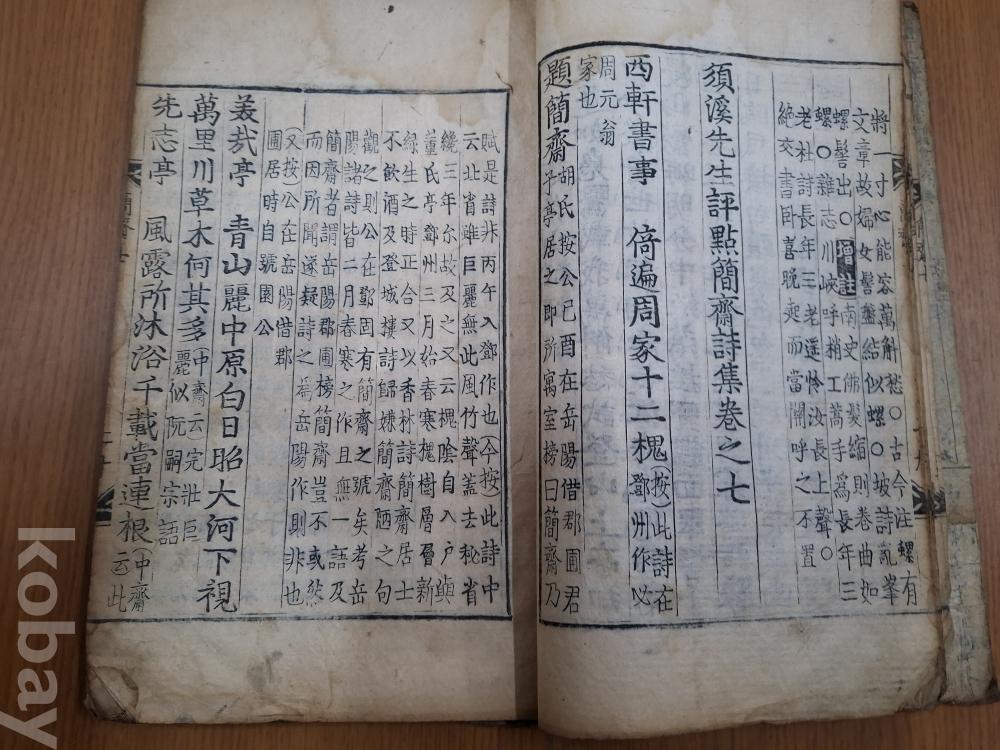 將一寸心能容萬斛愁○古今注螺有
文章故婦女髻盤結似螺○坡詩亂峯
螺髻出○增註南史佛髮縮則卷曲如
螺○雜志川峽呼梢工蒿手爲長年三
老杜詩長年三老遥怜汝長上聲○
絶交書卧喜晚起而當關呼之不置
須溪先生評點簡齋詩集卷之七
西軒書事 倚遍周家十二槐(按)此詩在
鄧州作必
周元翁
家也
題簡齋胡氏按公己酉在岳陽借郡圃君
子亭居之即所寓室榜曰簡齋乃
賦是詩非丙午入鄧作也(今按)此詩中
云北省雖巨麗無此風竹聲蓋去秘省
纔三年尓故及之又云槐陰自入户與
董氏亭鄧州三月始春寒槐樹層層新
緑生之時正合又以香林詩簡齋居士
不飲酒及登城樓詩歸嫌簡齋陋之句
觀之則公在鄧固有簡齋之號矣考岳
陽諸詩皆二月春寒之作且無一語及
簡齋者謂岳陽郡圃榜簡齋豈不或然
而因所聞遂疑詩之爲岳陽作則非也
(又按)公在岳陽借郡
圃居時自號園公
美哉亭 青山麗中原白日昭大河下視
萬里川草木何其多中齋云完壯巨
麗似阮嗣宗語
先志亭 風露所沐浴千載當連根(中齋
云此
kobay